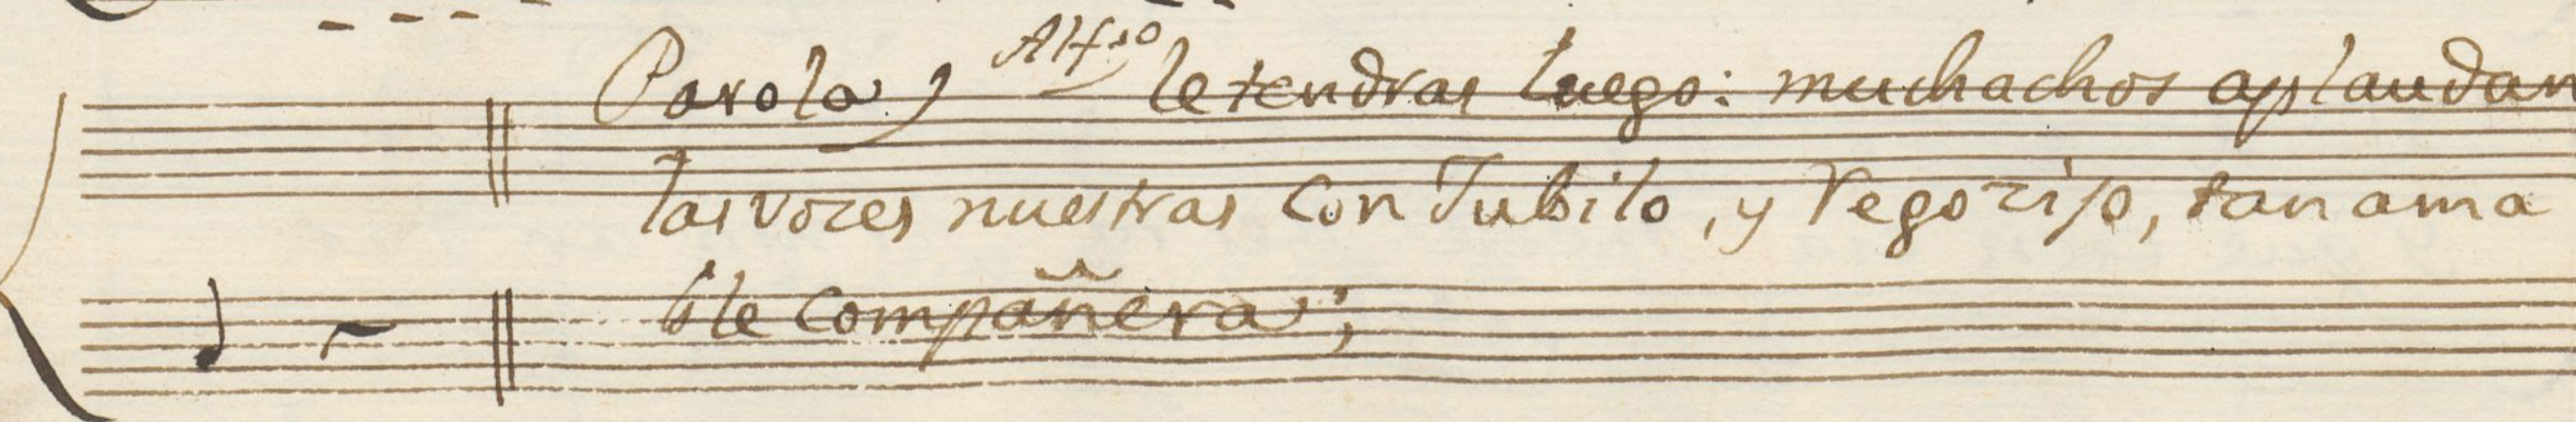 Parola, Alf.^so le tendras luego: muchachos aplaudan
las vozes nuestras con Jubilo, y regozijo, tan ama
ble compañera;